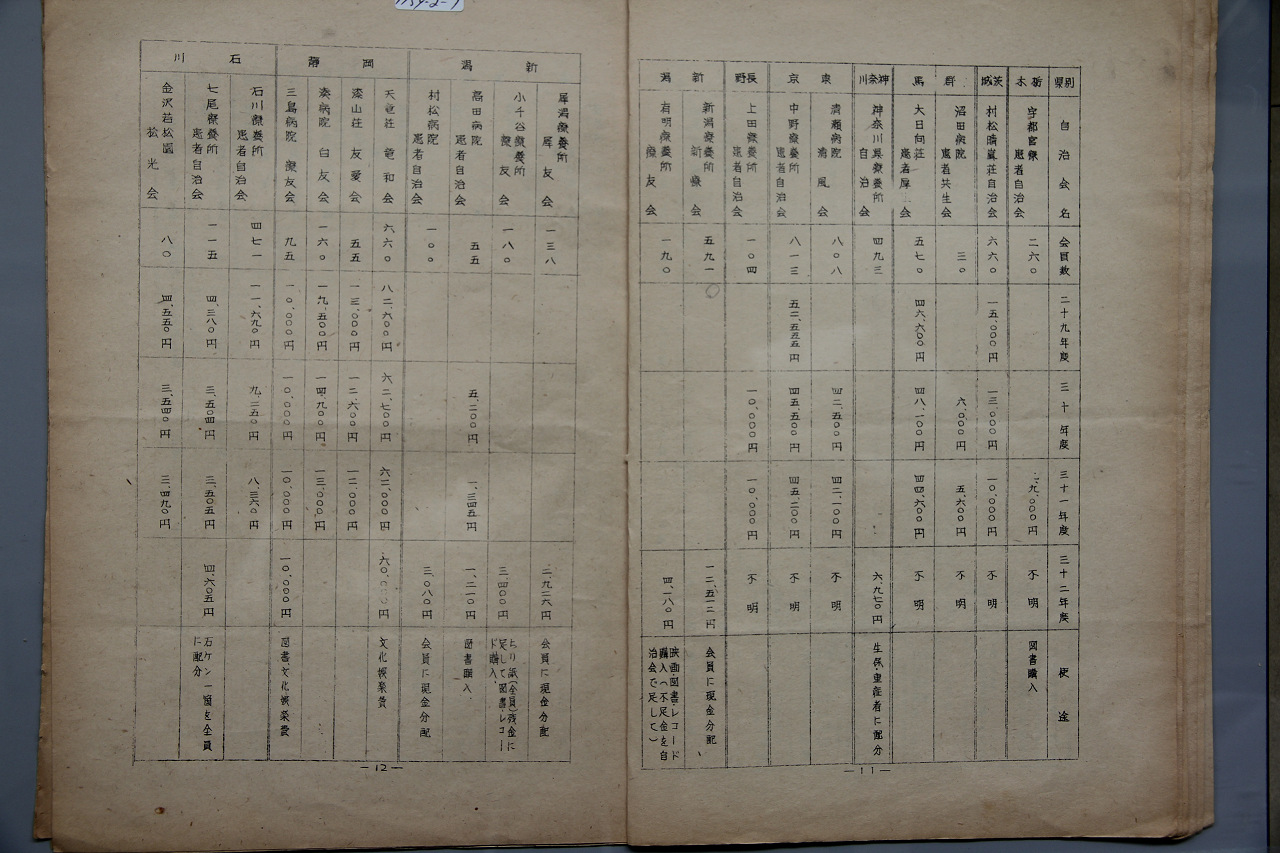 1754-2-9
県別
自治会名
会員数
二十九年度
三十年度
三十一年度
三十二年度
使途
栃木
宇都宮療
患者自治会
二六〇
一九、〇〇〇円
不明
図書購入
茨城
村松晴嵐荘自治会
六六〇
一五、〇〇〇円
一三、〇〇〇円
一〇、〇〇〇円
不明
群馬
沼田病院
患者共生会
三〇
六、〇〇〇円
五、六〇〇円
不明
大日向荘
患者厚会
五七〇
四六、六〇〇円
四八、一〇〇円
四四、六〇〇円
不明
神奈川
神奈川県療養所
自治会
四九三
六、九七〇円
生保・重症者に配分
東京
清瀬病院
清風会
八〇八
四二、五〇〇円
四二、一〇〇円
不明
中野療養所
患者自治会
八一三
五二、五五五円
四五、五〇〇円
四五、二〇〇円
不明
長野
上田療養所
患者自治会
一〇四
一〇、〇〇〇円
一〇、〇〇〇円
不明
新潟
新潟療養所
新療会
五九一
一二、五一二円
会員に現金分配
有明療養所
療友会
一九〇
四、一八〇円
映画・図書・レコード
購入(不足金を自
治会で足して)
—11—
新潟
犀潟療養所
犀友会
一三八
二、九二六円
会員に現金分配
小千谷療養所
療友会
一八〇
三、四〇〇円
ちり紙(全員)残金に
足して図書・レコー
ド購入
高田病院
患者自治会
五五
五、二〇〇円
一、三四五円
一、二一〇円
図書購入
村松病院
患者自治会
一〇〇
三、〇八〇円
会員に現金分配
静岡
天竜荘竜和会
六六〇
八二、六〇〇円
六二、七〇〇円
六二、〇〇〇円
六〇、〇〇〇円
文化娯楽費
漆山荘友愛会
五五
一三、〇〇〇円
一二、六〇〇円
一二、〇〇〇円
湊病院白友会
一六〇
一九、五〇〇円
一四、九〇〇円
一三、〇〇〇円
三島病院療友会
九五
一〇、〇〇〇円
一〇、〇〇〇円
一〇、〇〇〇円
一〇、〇〇〇円
図書文化娯楽費
石川
石川療養所
患者自治会
四七一
一一、六九〇円
九、二五〇円
八、三六〇円
七尾療養所
患者自治会
一一五
四、三八〇円
三、五〇四円
三、五〇五円
四、六〇五円
石ケン一箇を全員
に配分
金沢若松園
松光会
八〇
四、五五〇円
三、五四〇円
三、四九〇円
—12—